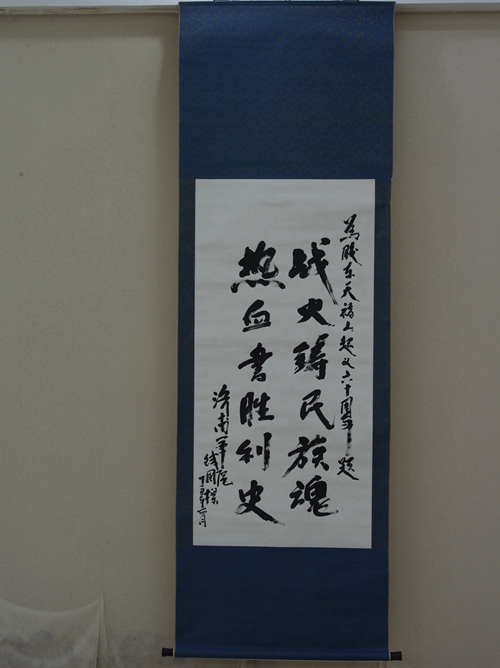 为胶东天福山起义六十周年题
战火鑄民族魂
热血書胜利史
济南军区
钱国樑
丁丑年六月